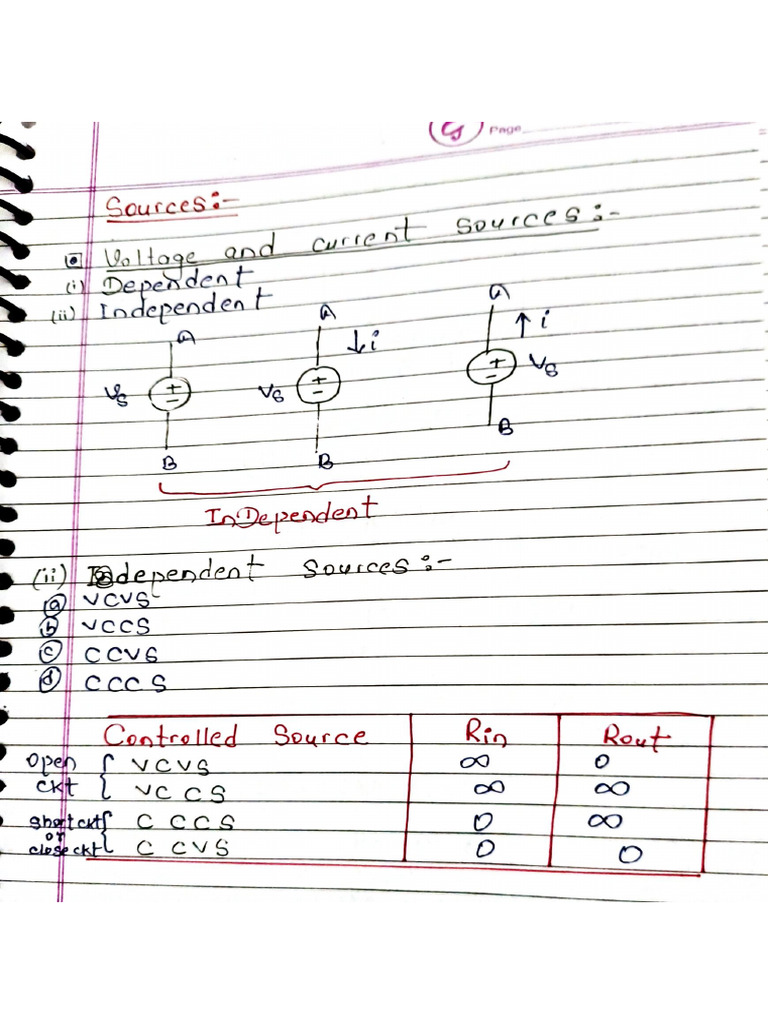 G Page
Sources:-
Voltage and current sources:-
(i) Dependent
(ii) Independent
a a a
↓i ↑i
Vs + - Vs + - + - Vs
B B B
InDependent
(ii) Independent sources:-
(a) VCVS
(b) VCCS
(c) CCVS
(d) CCCS
Controlled Source Rin Rout
open { VCVS ∞ 0
ckt VCCS ∞ ∞
short ckt { CCCS 0 ∞
or
close ckt CCVS 0 0